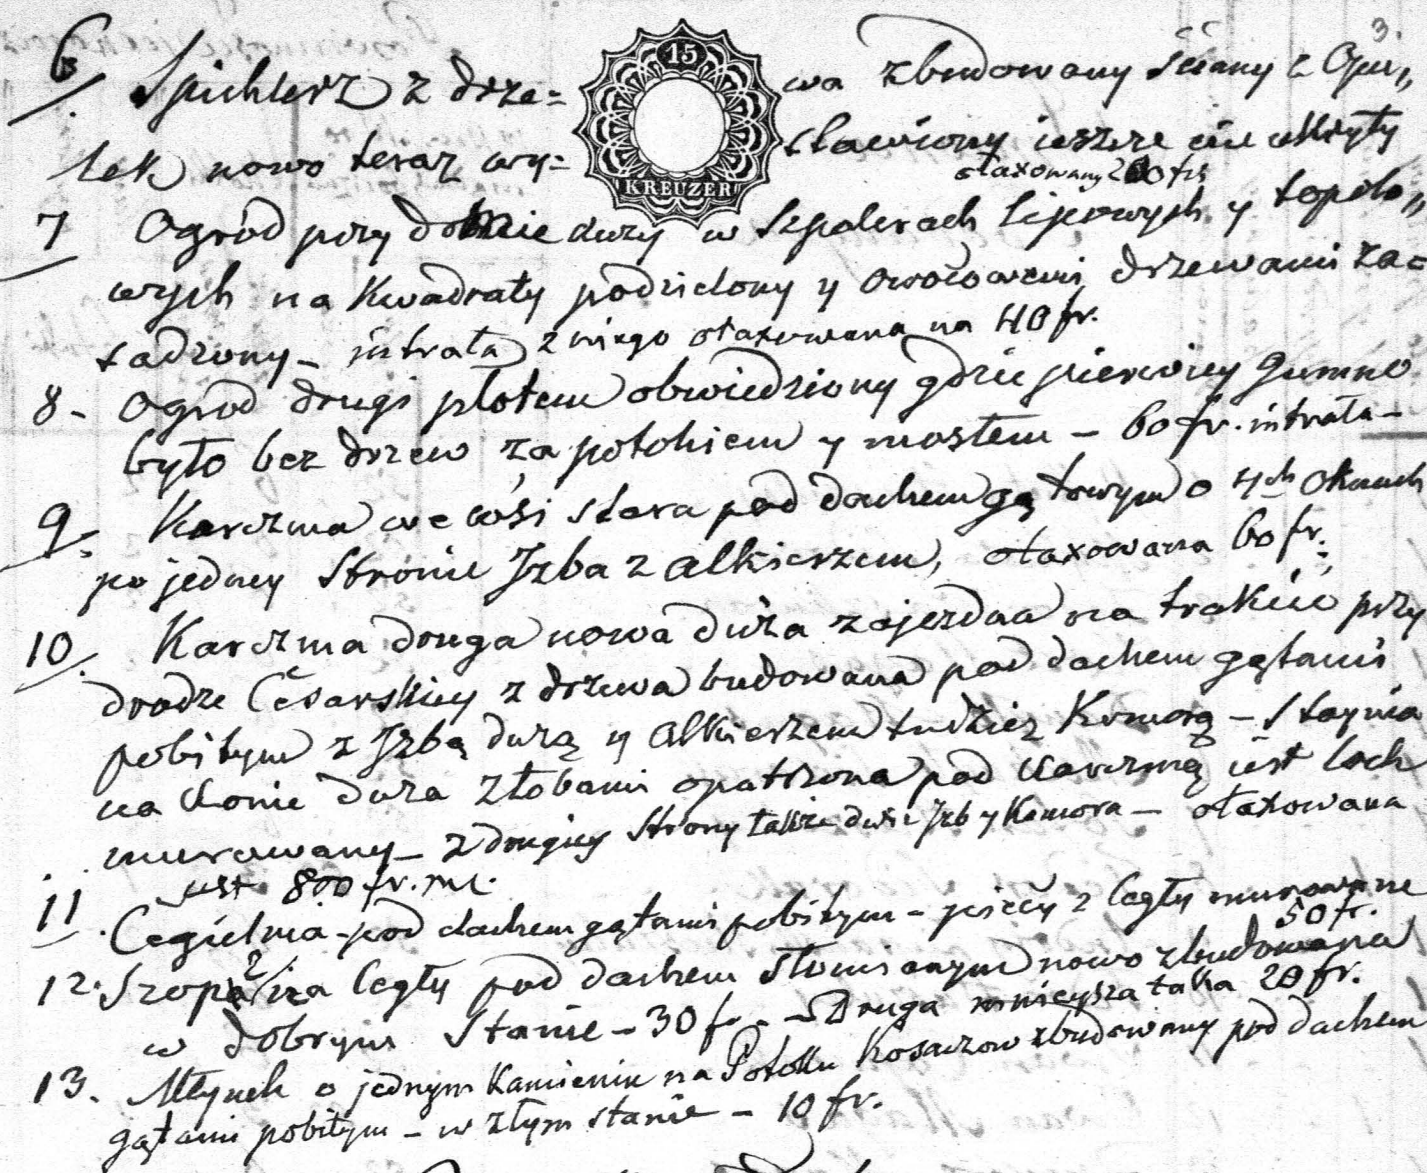 3.
6. Spichlerz z drze= wa zbudowany ściany z Opu„
15 KREUZER
łek nowo teraz wy= stawiony ieszcze nie ukryty
otaxowany 200 frs
7 Ogród przy domie duży w szpalerach lipowych y topolo„
wych na kwadraty podzielony y owocowemi drzewami za=
sadzony – intrata z niego otaxowana na 40 fr.
8 - Ogrod drugi płotem obwiedziony gdzie pierwiey gumno
było bez drzew za potokiem y mostem – 60 fr. intrata –
9. Karczma we wsi stara pod dachem gątowym o 4ch oknach
po jedney stronie Izba z alkierzem, otaxowana 60 fr.
10. Karczma druga nowa duża zajezdna na trakcie przy
drodze Cesarskiey z drzewa budowana pod dachem gątami
pobitym z Izbą dużą y alkierzem tudzież Komorą – staynia
na konie duża żłobami opatrzona pod karczmą iest loch
murowany – z drugiey strony także dwie Izb y Komora – otaxowana
iest 800 fr. mc.
11. Cegielnia – pod dachem gątami pobitym – piecy 2 cegły murowane
50 fr.
12. Szopa na cegły pod dachem słomianym nowo zbudowana
w dobrym stanie – 30 fr. – Druga mnieysza taka 20 fr.
13. Młynek o jednym kamieniu na Potoku Kosaczow zbudowany pod dachem
gątami pobitym – w złym stanie – 10 fr.